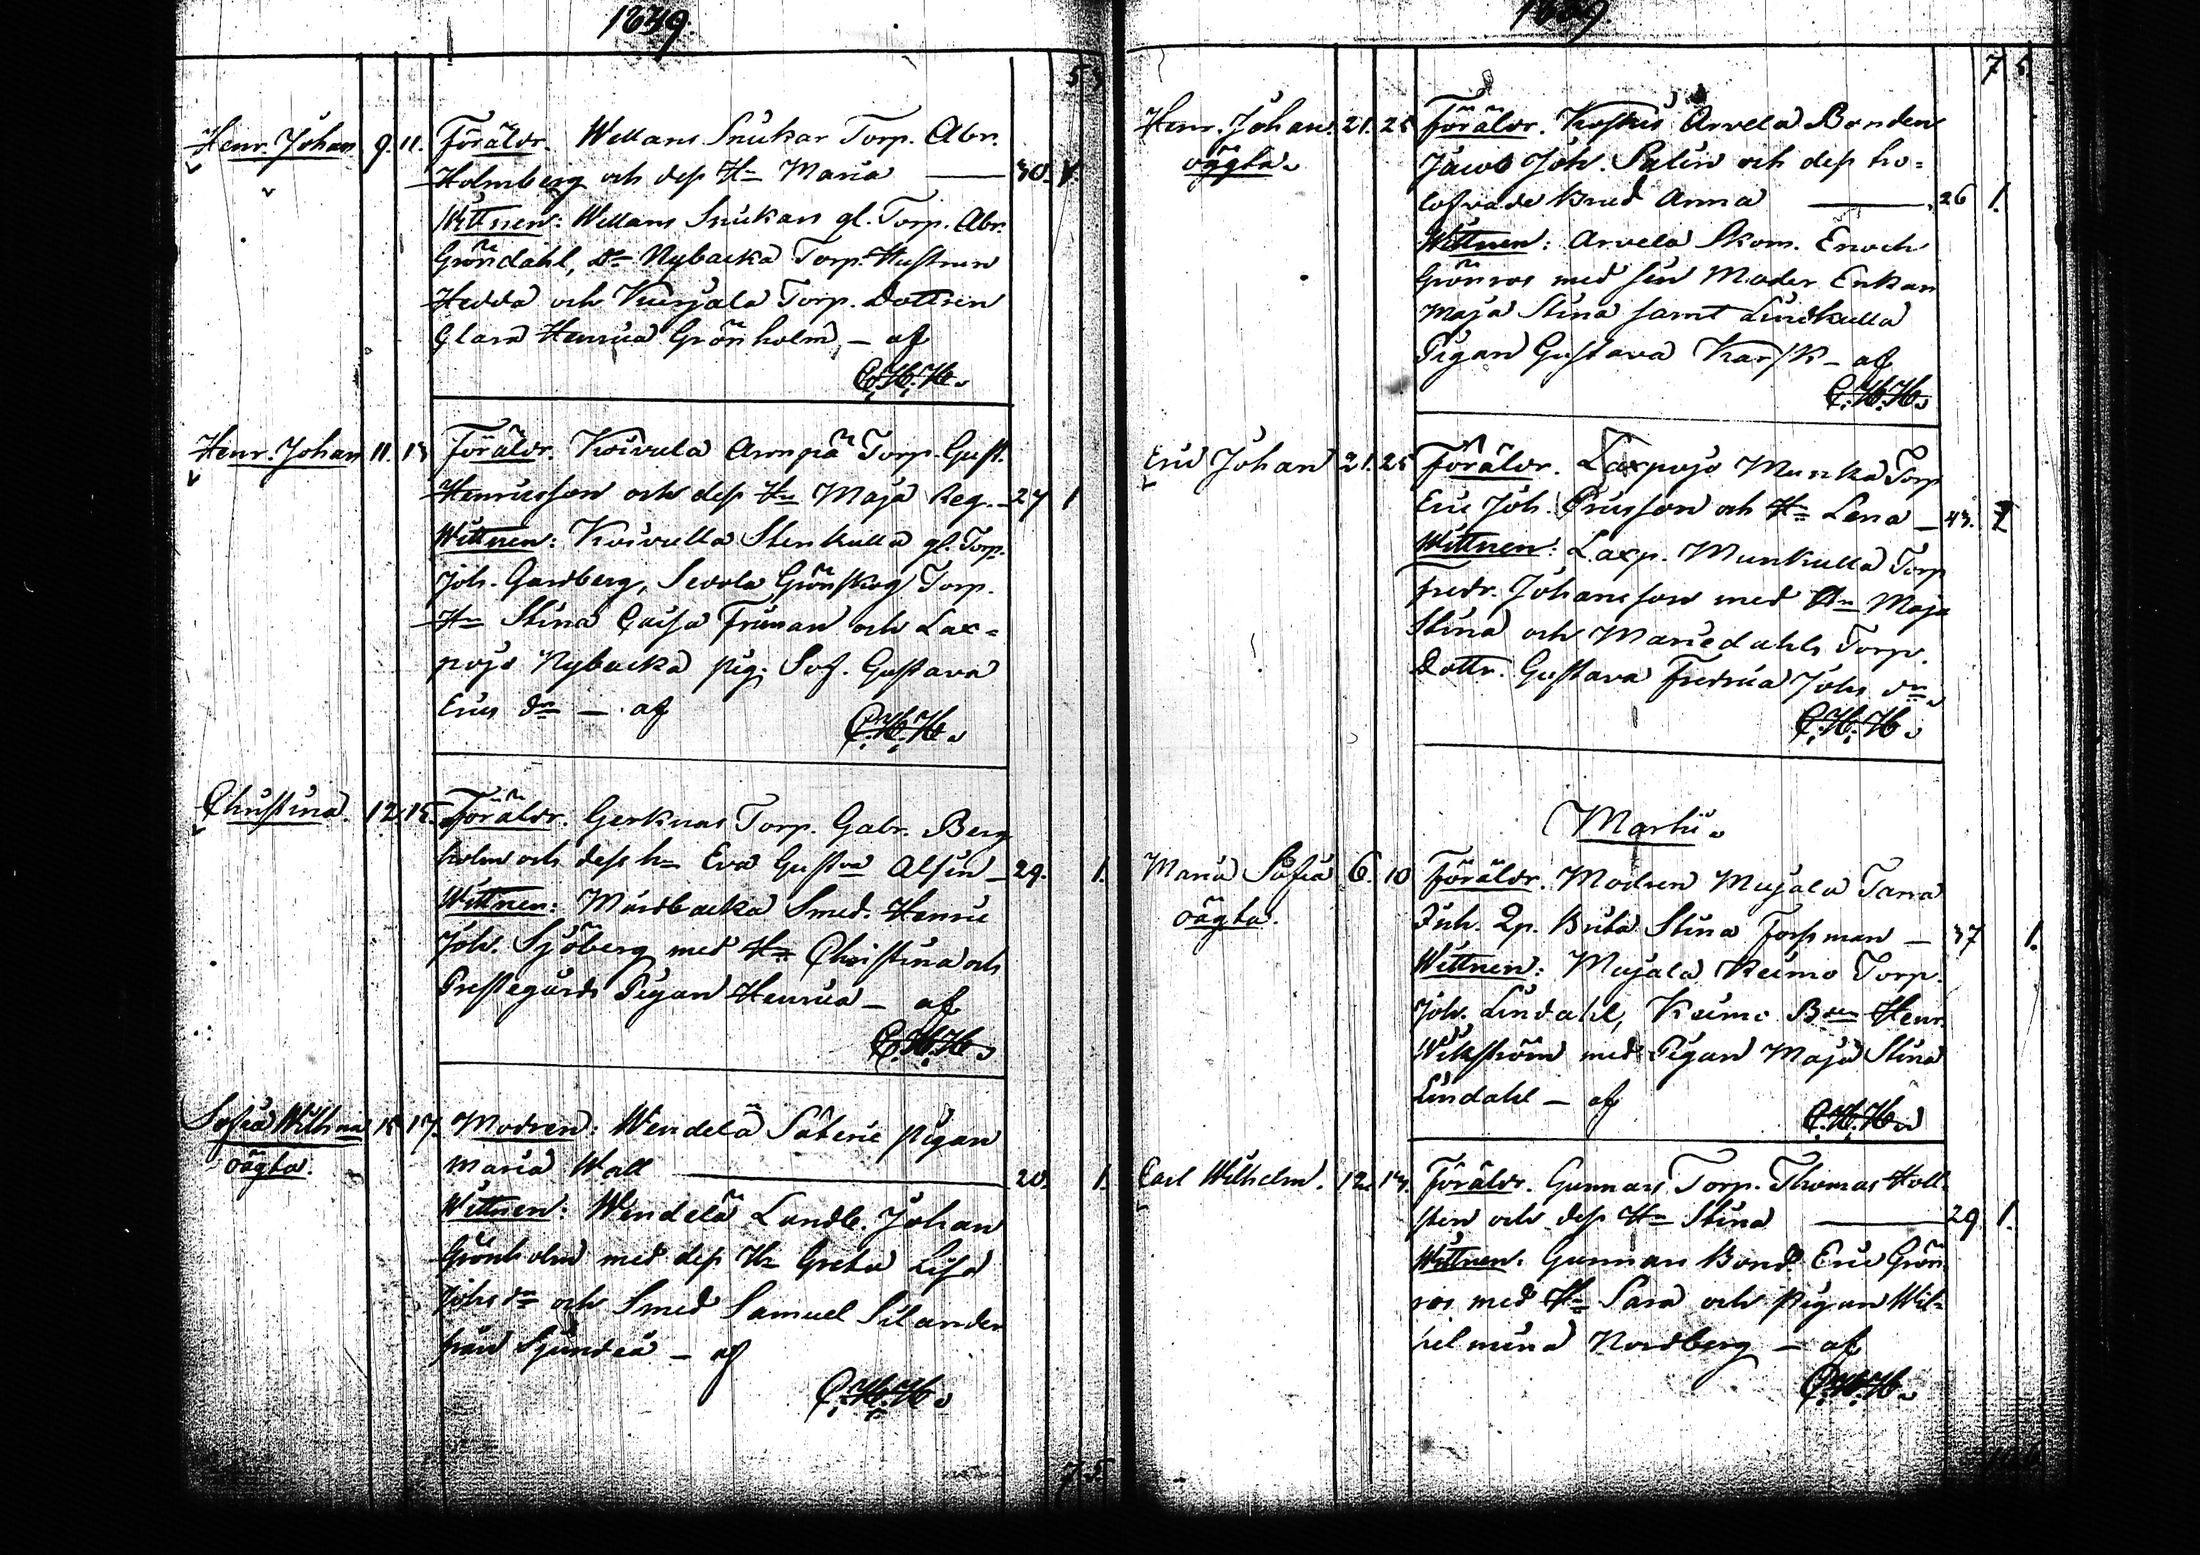 1839.
5 3
Henr. Johan 9. 11. Föräldr. Wellans Snickar Torp. Abr.
Holmberg och dess Hu Maria — 30. 1.
Wittnen: Wellans Snickars gl. Torp. Abr.
Gröndahl, do Nybacka Torp. Hustrun
Hedda och Kurjala Torp. Dottren
Clara Henrica Grönholm, — af
C. H. H.
Henr. Johan 11. 13 Föräldr. Koivula Torp. Gust.
Henricsson och dess Hu Maja Reg. — 27 1
Wittnen: Koivulla Stenkulla gl. Torp.
Joh. Gardberg, Grönskog Torp.
Hu Stina Caisa Friman och Lax=
pojo Nybacka pig. Sof. Gustava
Erics dr — af
C. H. H.
Christina. 12. 15. Föräldr. Gerknas Torp. Gabr. Berg
holm och dess hu Eva Gustva Alsin — 29. 1.
Wittnen: Mårdbacka Smed. Henric
Joh. Sjöberg med Hu Christina och
Prestegårds Pigan Henrica — af
C. H. H.
Sofia Wilhna 15 17. Modren: Wendelä Säterie pigan
oägta. Maria Wall — 20. 1.
Wittnen: Wendelä Landb. Johan
Grönholm med dess Hu Greta Lisa
Johs dr och Smed Samuel Silander
från Sjundeå — af
C. H. H.
7 5.
1839
7 5.
Henr. Johan. 21. 25 Föräldr. Arvela Bonden
oägta. Jacob Joh. Salin och dess tro=
lofvade Brud Anna — 26 1.
Wittnen: Arvela Skom. Enoch
Grönros med sin Moder Enkan
Maja Stina samt Lindkulla
Pigan Gustava Karsk — af
C. H. H.
Eric Johan 21. 25 Föräldr. Laxpojo Munka Torp
Eric Joh. Ericsson och Hu Lena — 43. 1
Wittnen: Laxp. Munkulla Torp
fredr. Johansson med Hu Maja
Stina och Mariedahls Torp.
Dottr. Gustava Fredrica Johs dr
C. H. H.
Martii.
Maria Sofia 6. 10 Föräldr. Modren Mujala Tarra
oägta. Inh. Qp. Brita Stina Forssman — 37 1.
Wittnen: Mujala Keimo Torp.
Joh. Lindahl, Keimo Bon Henr.
Wikström med Pigan Maja Stina
Lindahl — af
C. H. H.
Carl Wilhelm. 12. 13. Föräldr. Gunnars Torp. Thomas Holl-
sten och dess Hu Stina — 29 1.
Wittnen: Gunnars Bond. Eric Grön
ros med Hu Sara och Pigan Wil=
helmina Nordberg — af
C. H. H.